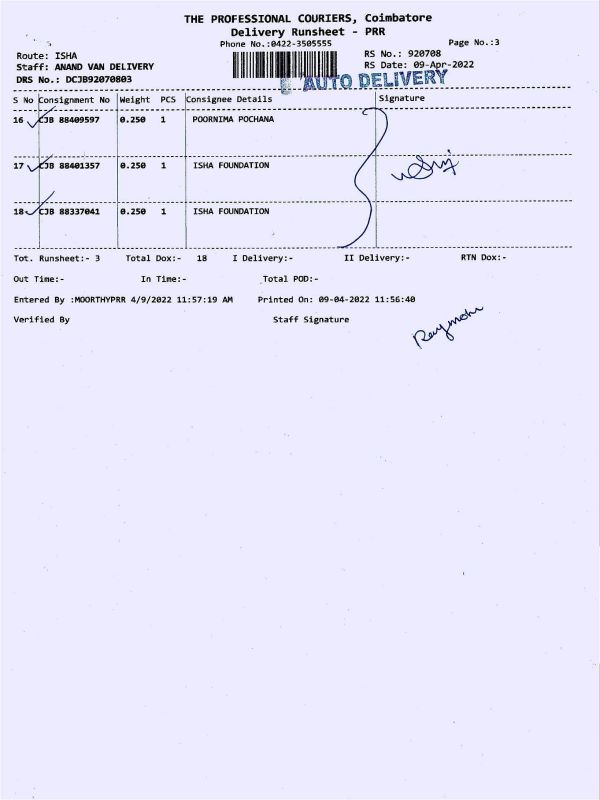 THE PROFESSIONAL COURIERS, Coimbatore
Delivery Runsheet - PRR
Phone No.:0422-3505555
Page No.:3
Route: ISHA
RS No.: 920708
Staff: ANAND VAN DELIVERY
RS Date: 09-Apr-2022
DRS No.: DCJB92070803
AUTO DELIVERY
S No Consignment No Weight PCS Consignee Details Signature
16 CJB 88409597 0.250 1 POORNIMA POCHANA
17 CJB 88401357 0.250 1 ISHA FOUNDATION
18 CJB 88337041 0.250 1 ISHA FOUNDATION
Tot. Runsheet:- 3 Total Dox:- 18 I Delivery:- II Delivery:- RTN Dox:-
Out Time:- In Time:- Total POD:-
Entered By :MOORTHYPRR 4/9/2022 11:57:19 AM Printed On: 09-04-2022 11:56:40
Verified By Staff Signature